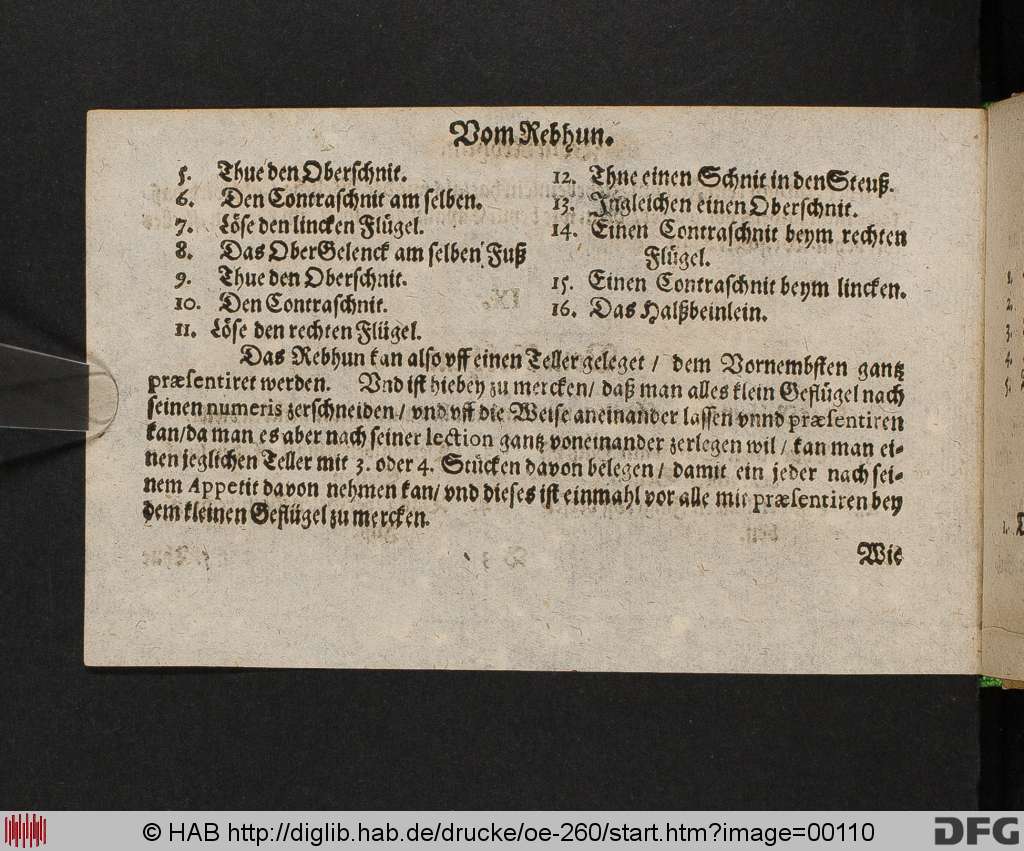 Vom Rebhun.
5. Thue den Oberschnit.
6. Den Contraschnit am selben.
7. Löse den lincken Flügel.
8. Das OberGelenck am selben Fuß
9. Thue den Oberschnit.
10. Den Contraschnit.
11. Löse den rechten Flügel.
12. Thue einen Schnit in den Steuß.
13. Ingleichen einen Oberschnit.
14. Einen Contraschnit beym rechten
Flügel.
15. Einen Contraschnit beym lincken.
16. Das Halßbeinlein.
Das Rebhun kan also vff einen Teller geleget / dem Vornembsten gantz
præsentiret werden. Vnd ist hiebey zu mercken / daß man alles klein Geflügel nach
seinen numeris zerschneiden / vnd vff die Weise aneinander lassen vnnd præsentiren
kan / da man es aber nach seiner lection gantz voneinander zerlegen wil / kan man ei-
nen jeglichen Teller mit 3. oder 4. Stücken davon belegen / damit ein jeder nach sei-
nem Appetit davon nehmen kan / vnd dieses ist einmahl vor alle mit præsentiren bey
dem kleinen Geflügel zu mercken.
Wie
© HAB http://diglib.hab.de/drucke/oe-260/start.htm?image=00110
DFG